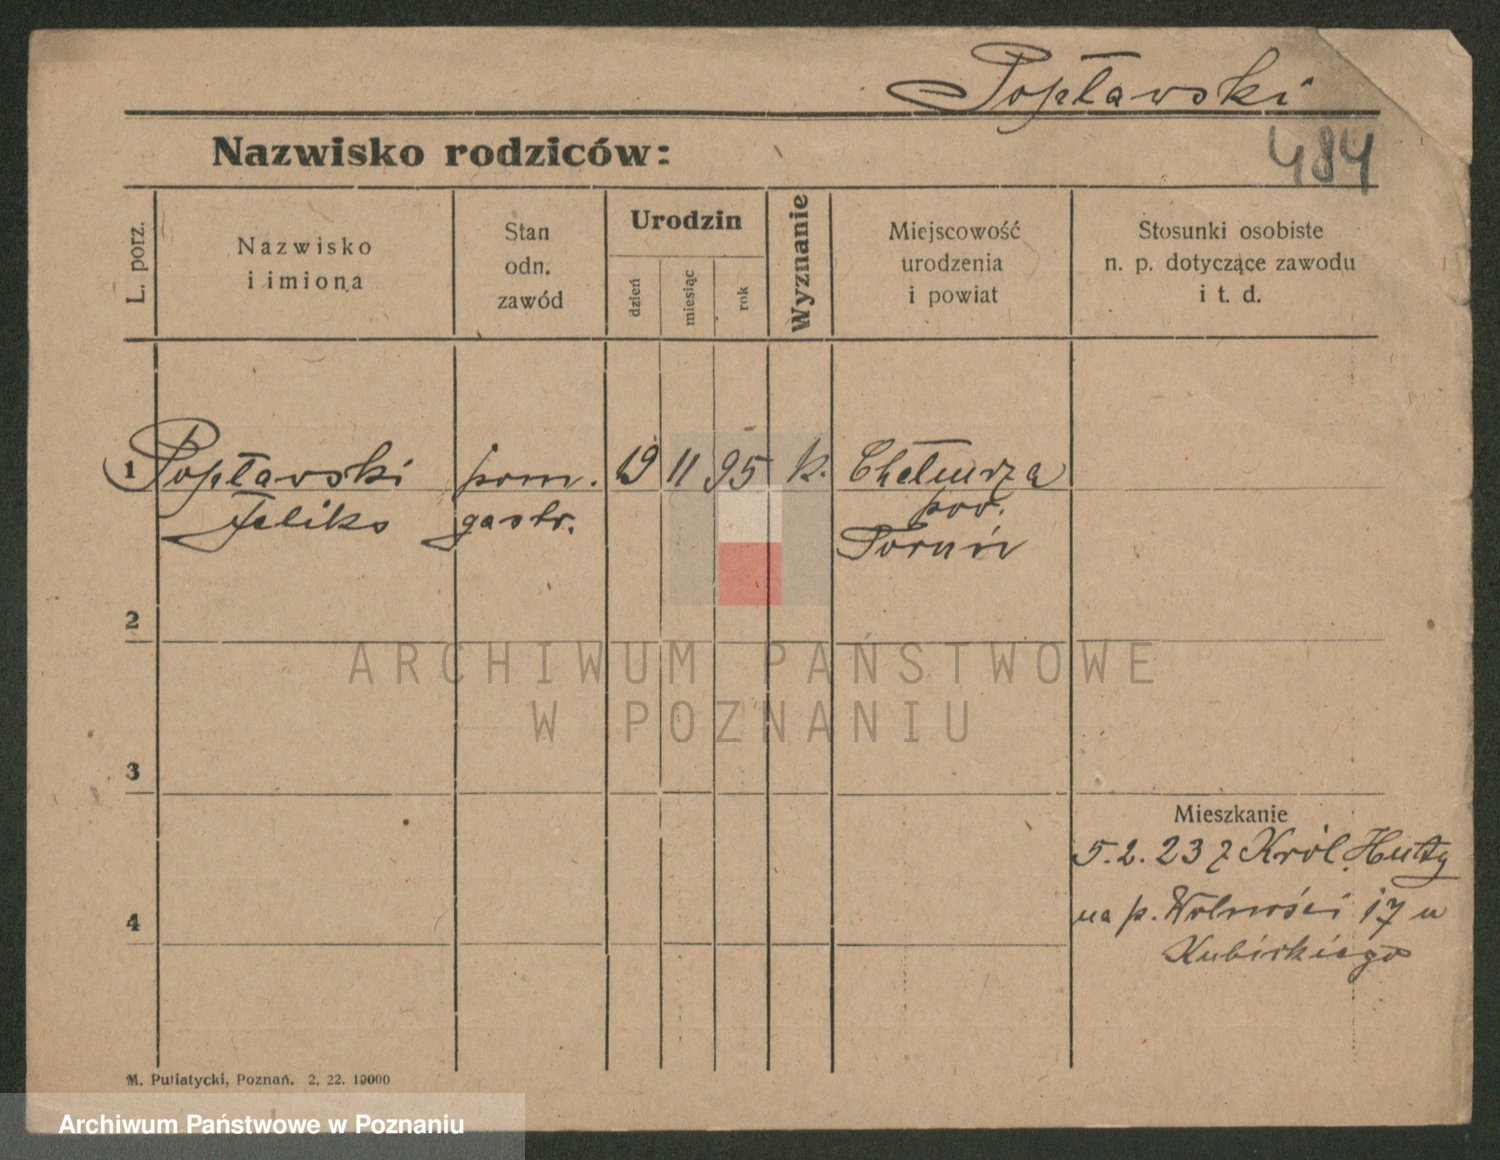 Popławski
484
Nazwisko rodziców:
L. porz.
Nazwisko
i imiona
Stan
odn.
zawód
Urodzin
dzień
miesiąc
rok
Wyznanie
Miejscowość
urodzenia
i powiat
Stosunki osobiste
n. p. dotyczące zawodu
i t. d.
1 Popławski pom. 19 11 95 k. Chełmrza
Feliks gastr. pow.
Toruń
2
3
4
Mieszkanie
5.2.23 z Król. Huty
na p. Wolności 17 u
Kubickiego
M. Putiatycki, Poznań. 2. 22. 10000
ARCHIWUM PAŃSTWOWE
W POZNANIU
Archiwum Państwowe w Poznaniu